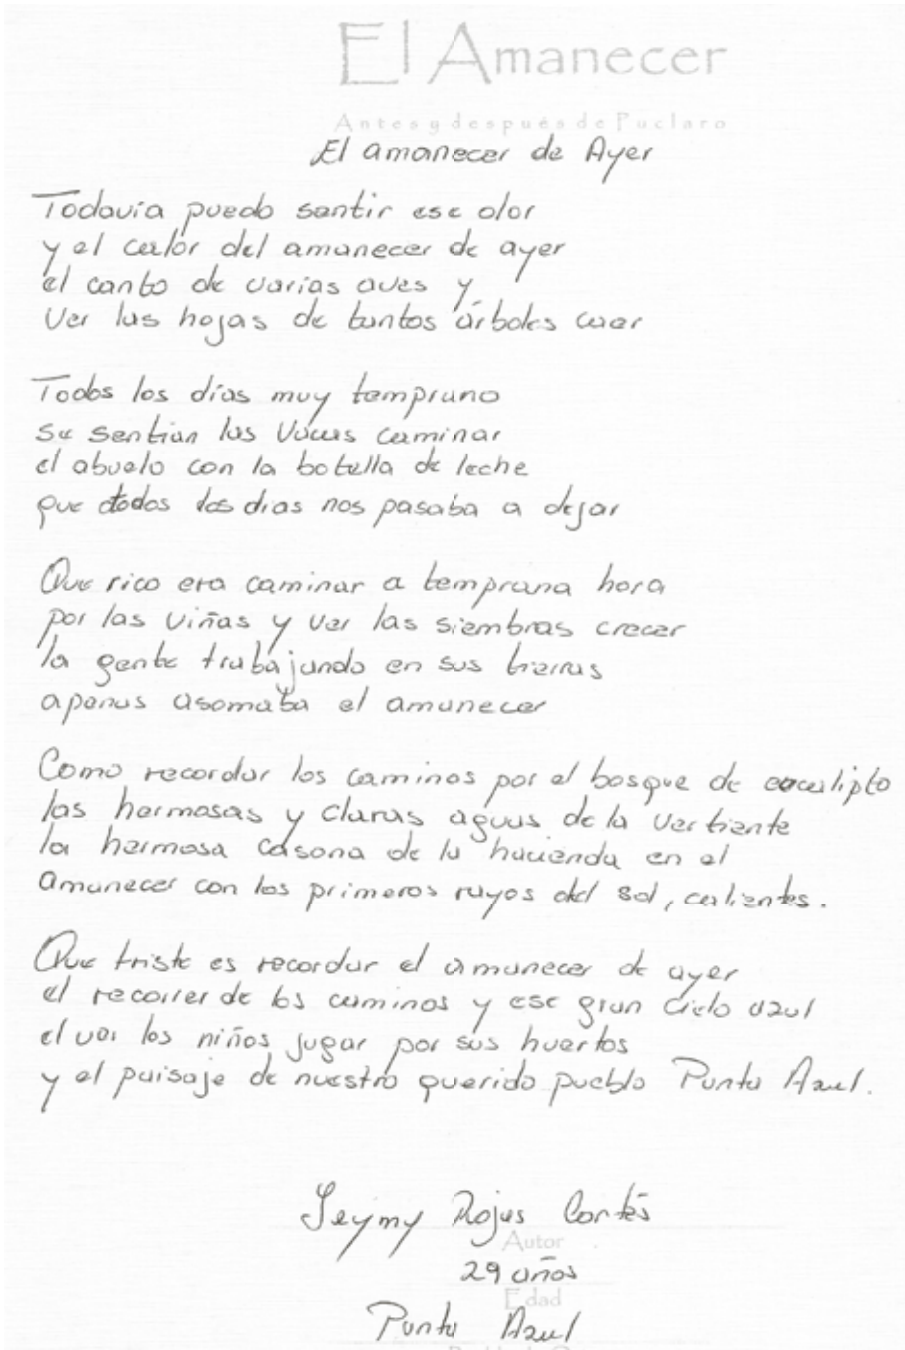 El Amanecer
Antes y después de Puclaro
El amanecer de Ayer
Todavía puedo sentir ese olor
y el calor del amanecer de ayer
el canto de varias aves y
ver las hojas de tantos árboles caer
Todos los días muy temprano
se sentian las vacas caminar
el abuelo con la botella de leche
que todos los dias nos pasaba a dejar
Que rico era caminar a temprana hora
por las viñas y ver las siembras crecer
la gente trabajando en sus tierras
apenas asomaba el amanecer
Como recordar los caminos por el bosque de
las hermosas y claras aguas de la vertiente
la hermosa casona de la hacienda en el
amanecer con los primeros rayos del sol, calientes.
Que triste es recordar el amanecer de ayer
el recorrer de los caminos y ese gran cielo azul
el ver los niños jugar por sus huertos
y el paisaje de nuestro querido pueblo Punta Azul.
Rojas Cortés
Autor
29 años
Edad
Punta Azul